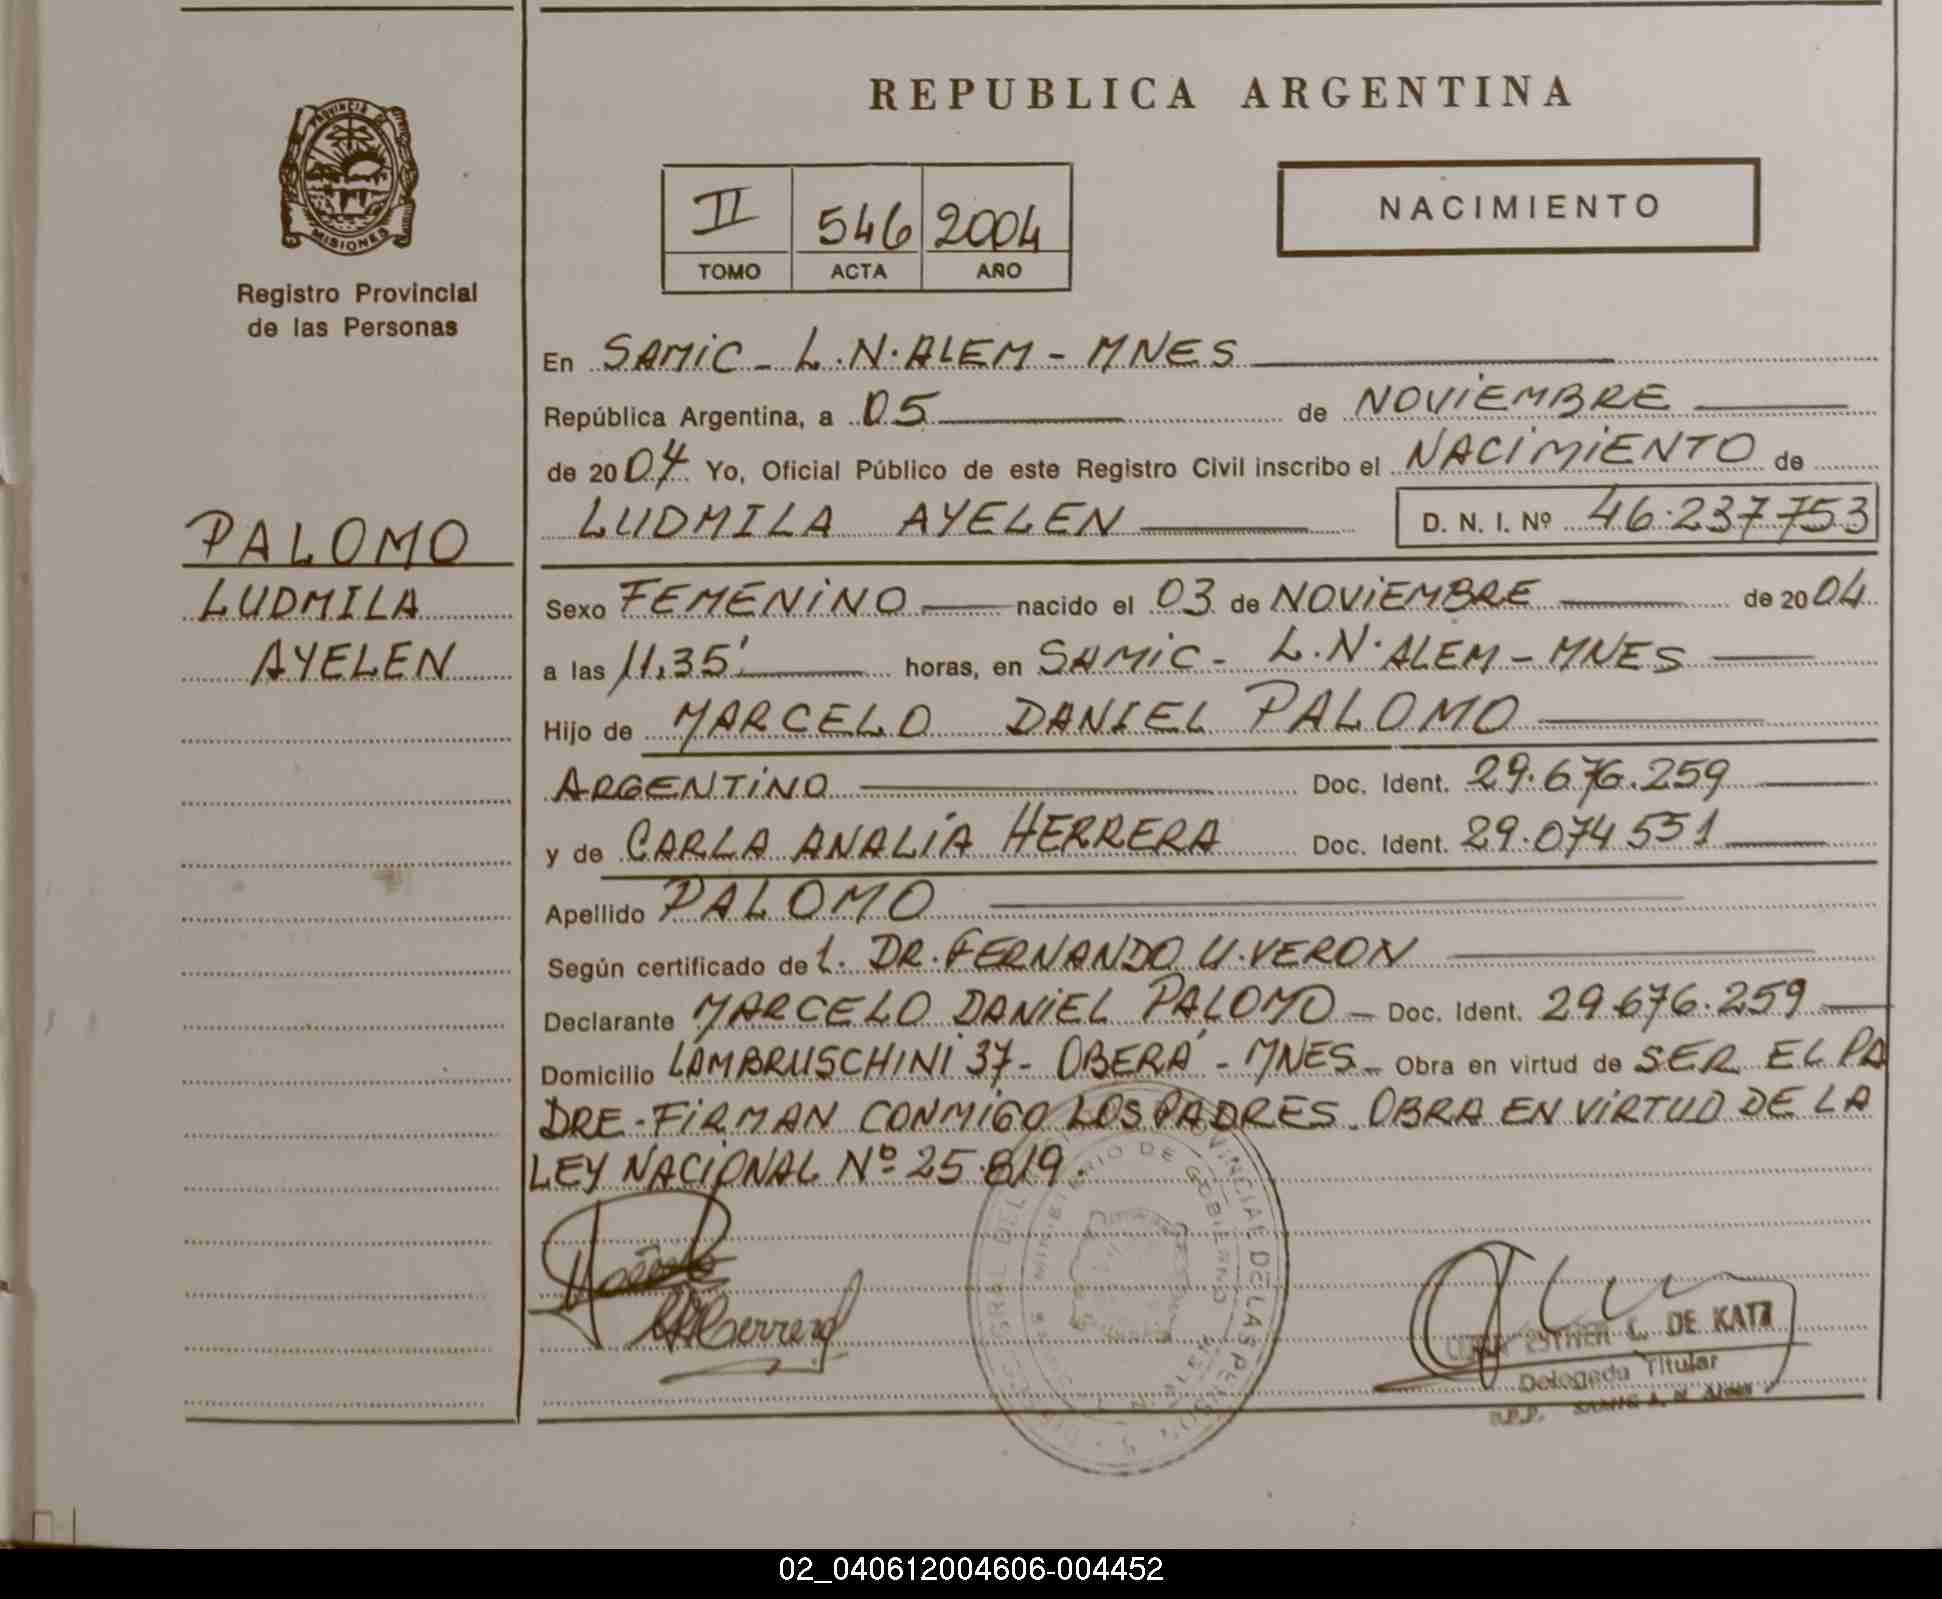 REPUBLICA ARGENTINA
PROVINCIA DE
MISIONES
Registro Provincial
de las Personas
II 546 2004
TOMO ACTA AÑO
NACIMIENTO
En SAMIC - L.N. ALEM - MNES
República Argentina, a 05 de NOVIEMBRE
de 2004 Yo, Oficial Público de este Registro Civil inscribo el NACIMIENTO de
LUDMILA AYELEN D. N. I. Nº 46.237.753
PALOMO
LUDMILA
AYELEN
Sexo FEMENINO nacido el 03 de NOVIEMBRE de 2004
a las 11,35' horas, en SAMIC - L.N. ALEM - MNES
Hijo de MARCELO DANIEL PALOMO
ARGENTINO Doc. Ident. 29.676.259
y de CARLA ANALÍA HERRERA Doc. Ident. 29.074.551
Apellido PALOMO
Según certificado de 1. DR. FERNANDO U. VERON
Declarante MARCELO DANIEL PALOMO - Doc. Ident. 29.676.259
Domicilio LAMBRUSCHINI 37 - OBERÁ - MNES - Obra en virtud de SER EL PA
DRE - FIRMAN CONMIGO LOS PADRES. OBRA EN VIRTUD DE LA
LEY NACIONAL Nº 25.819.
PROVINCIAL DE LAS PERSONAS
MINISTERIO DE GOBIERNO
Herrera
ESTHER L. DE KATZ
Delegada Titular
02_040612004606-004452